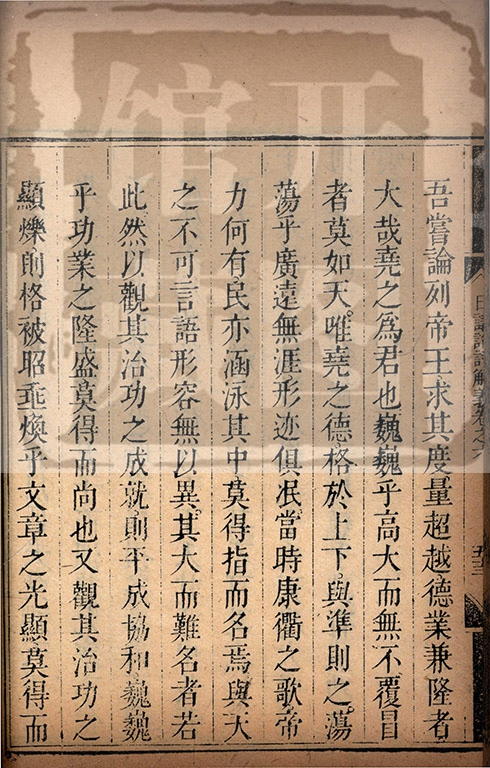 吾嘗論列帝王求其度量超越德業兼隆者
大哉堯之為君也巍巍乎高大而無不覆冒
者莫如天唯堯之德格於上下與準則之蕩
蕩乎廣遠無涯形迹俱泯當時康衢之歌帝
力何有民亦涵泳其中莫得指而名焉與天
之不可言語形容無以異其大而難名者若
此然以觀其治功之成就則平成協和巍巍
乎功業之隆盛莫得而尚也又觀其治功之
顯爍則格被昭垂煥乎文章之光顯莫得而
日講四書解義卷之六